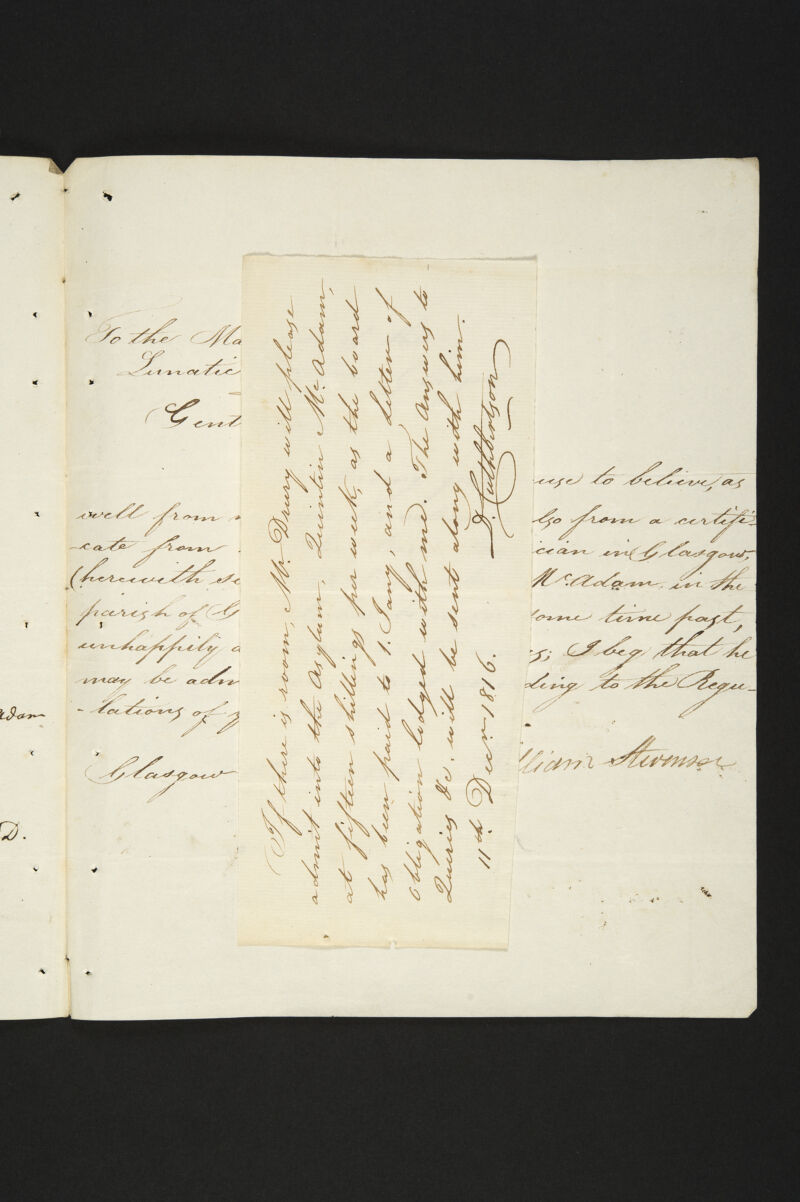 To the Ma
Lunatic
Gent
use to believe, as
well from lso from a certifi-
cate from ician in Glasgow,
(herewith se Mc.Adam in the
parish of G some time past,
unhappily a I beg that he
may be adm ding to the Regu-
-lations of y
Glasgow lliam Stevenson
adam
D.
If there is room, Mr. Drury will please
admit into the Asylum, Quintin Mc.Adam,
at fifteen shillings per week, as the board
has been paid to 1. Jany, and a Letter of
Obligation lodged with me. The Answers to
Queries &c. will be sent along with him.
D. Cuthbertson
11th Decr. 1816.